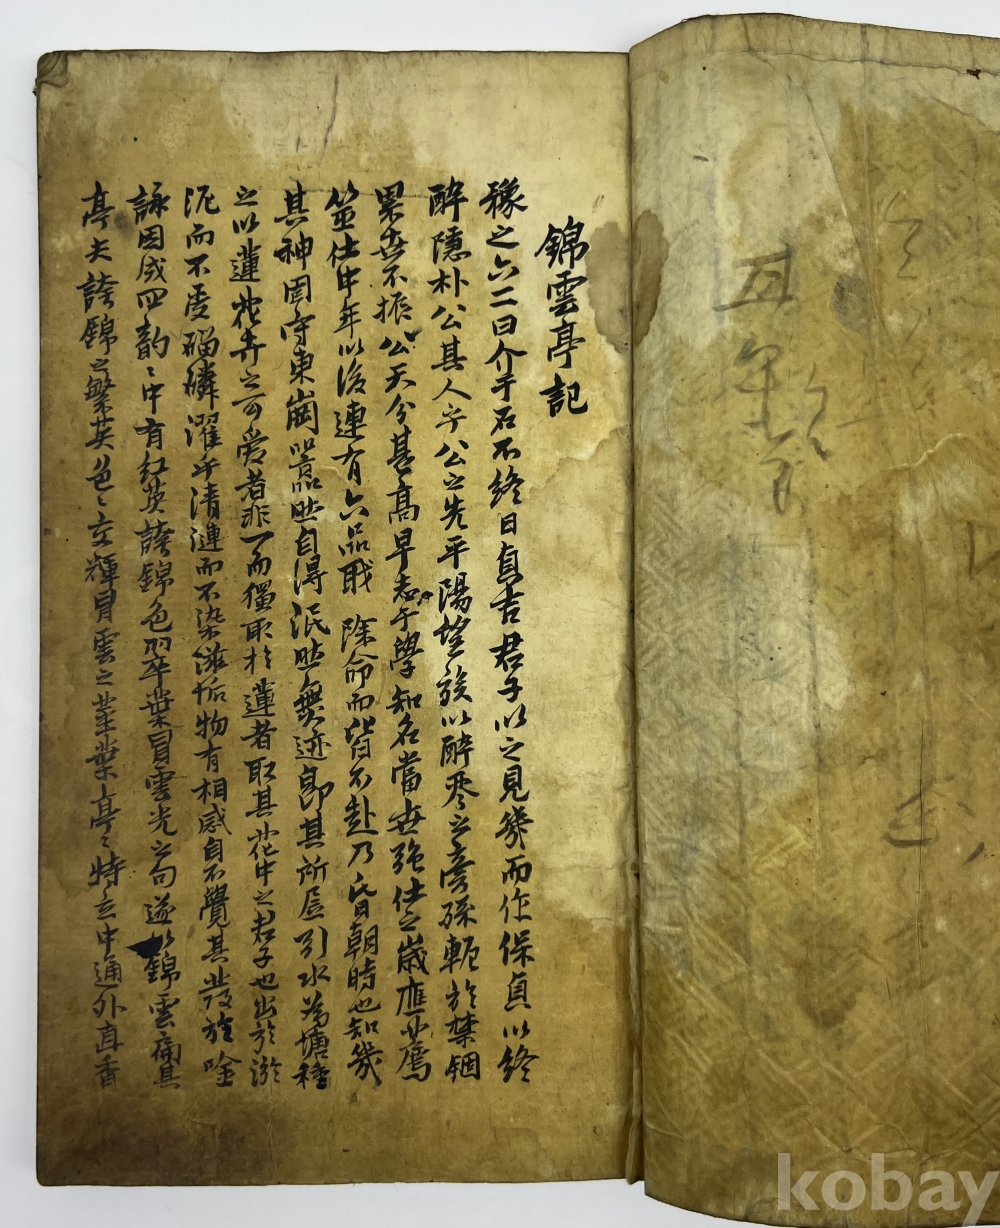 錦雲亭記
豫之六二曰介于石不終日貞吉君子以之見幾而作保貞以終
醉隱朴公其人乎公之先平陽望族以醉琴之旁孫軛於禁錮
累世不振公天分甚高早志于學知名當世强仕之歲應薦
筮仕中年以後連有六品職除命而皆不赴乃昏朝時也知幾
其神固守東岡囂然自得泯然無迹即其所居引水為塘種
之以蓮花卉之可爱者非一而獨取於蓮者取其花中之君子也出於淤
泥而不受磷濯乎清漣而不染滋垢物有相感自不覺其發於唫
詠因成四韵〻中有紅英誇錦色翠葉冒雲光之句遂以錦雲扁其
亭夫誇錦之繁英色〻交輝冒雲之葉亭〻特立中通外直香
kobay